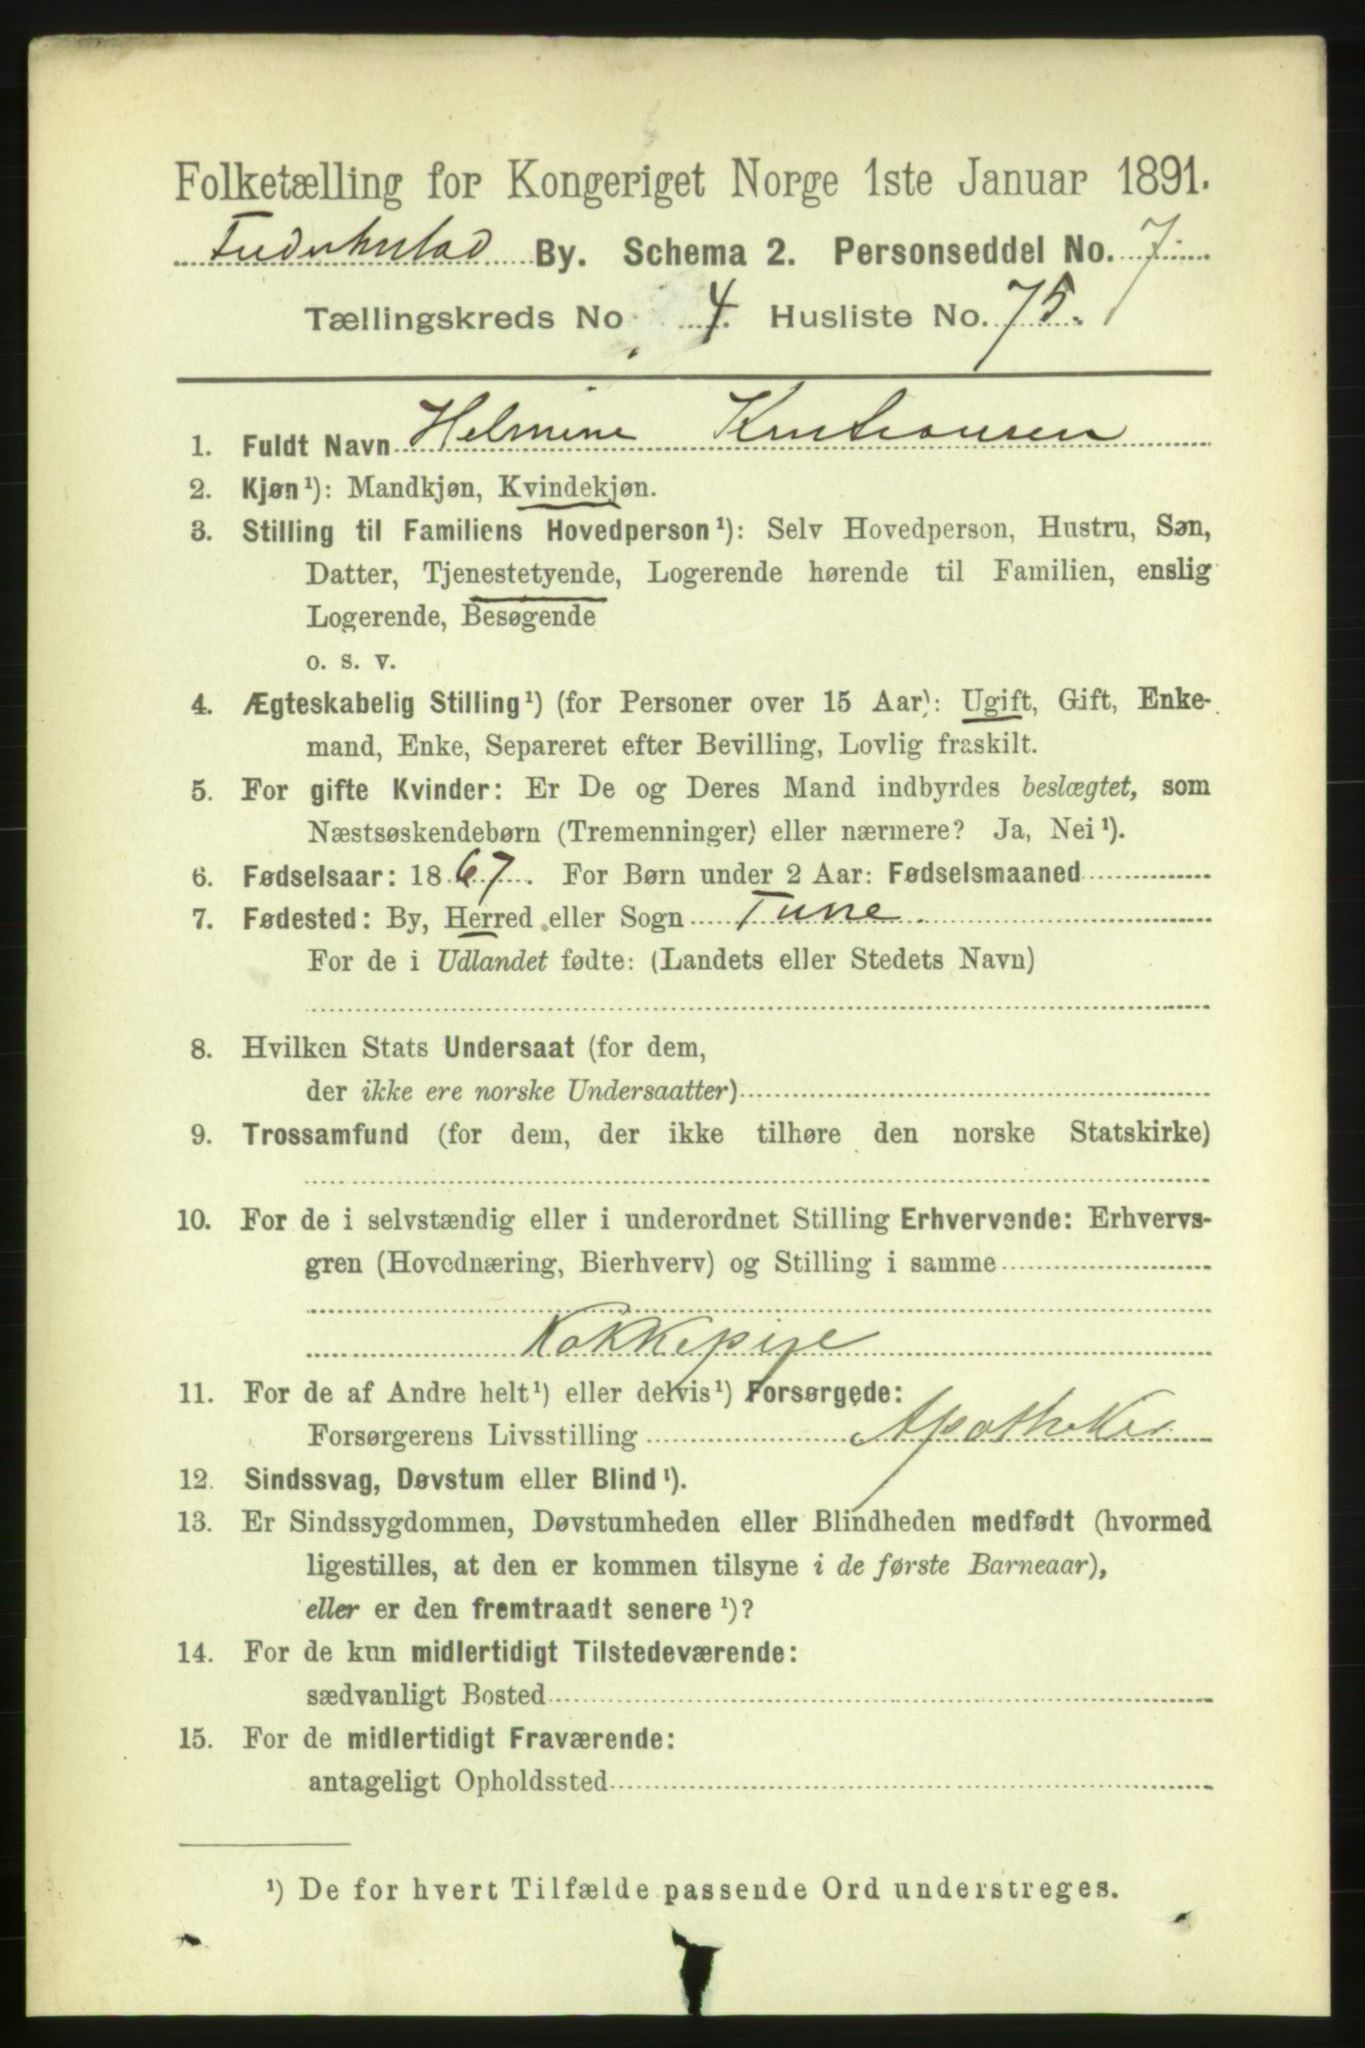 Folketælling for Kongeriget Norge 1ste Januar 1891.
Frederikstad By. Schema 2. Personseddel No. 7.
Tællingskreds No 4. Husliste No. 75.
1. Fuldt Navn Helmine Kristiansen
2. Kjøn¹): Mandkjøn, Kvindekjøn.
3. Stilling til Familiens Hovedperson¹): Selv Hovedperson, Hustru, Søn,
Datter, Tjenestetyende, Logerende hørende til Familien, enslig
Logerende, Besøgende
o. s. v.
4. Ægteskabelig Stilling¹) (for Personer over 15 Aar): Ugift, Gift, Enke-
mand, Enke, Separeret efter Bevilling, Lovlig fraskilt.
5. For gifte Kvinder: Er De og Deres Mand indbyrdes beslægtet, som
Næstsøskendebørn (Tremenninger) eller nærmere? Ja, Nei¹).
6. Fødselsaar: 1867. For Børn under 2 Aar: Fødselsmaaned
7. Fødested: By, Herred eller Sogn Tune.
For de i Udlandet fødte: (Landets eller Stedets Navn)
8. Hvilken Stats Undersaat (for dem,
der ikke ere norske Undersaatter)
9. Trossamfund (for dem, der ikke tilhøre den norske Statskirke)
10. For de i selvstændig eller i underordnet Stilling Erhvervende: Erhvervs-
gren (Hovednæring, Bierhverv) og Stilling i samme
Kokkepige
11. For de af Andre helt¹) eller delvis¹) Forsørgede:
Forsørgerens Livsstilling Apotheker
12. Sindssvag, Døvstum eller Blind¹).
13. Er Sindssygdommen, Døvstumheden eller Blindheden medfødt (hvormed
ligestilles, at den er kommen tilsyne i de første Barneaar),
eller er den fremtraadt senere¹)?
14. For de kun midlertidigt Tilstedeværende:
sædvanligt Bosted
15. For de midlertidigt Fraværende:
antageligt Opholdssted
¹) De for hvert Tilfælde passende Ord understreges.